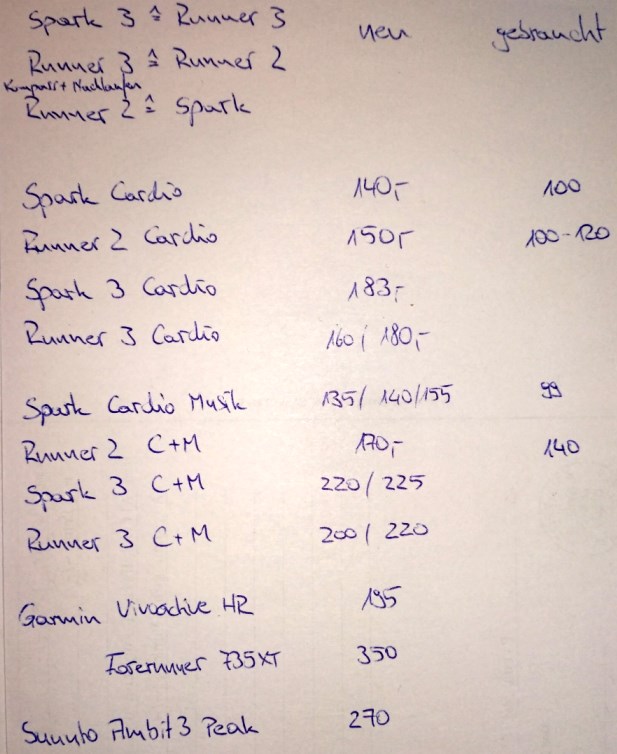 Spark 3 ≙ Runner 3 neu gebraucht
Runner 3 ≙ Runner 2
Kompass + Nachlaufen
Runner 2 ≙ Spark
Spark Cardio 140,- 100
Runner 2 Cardio 150,- 100-120
Spark 3 Cardio 183,-
Runner 3 Cardio 160/ 180,-
Spark Cardio Musik 135/ 140/155 99
Runner 2 C+M 170,- 140
Spark 3 C+M 220/ 225
Runner 3 C+M 200/ 220
Garmin Vivoactive HR 195
Forerunner 735XT 350
Suunto Ambit3 Peak 270